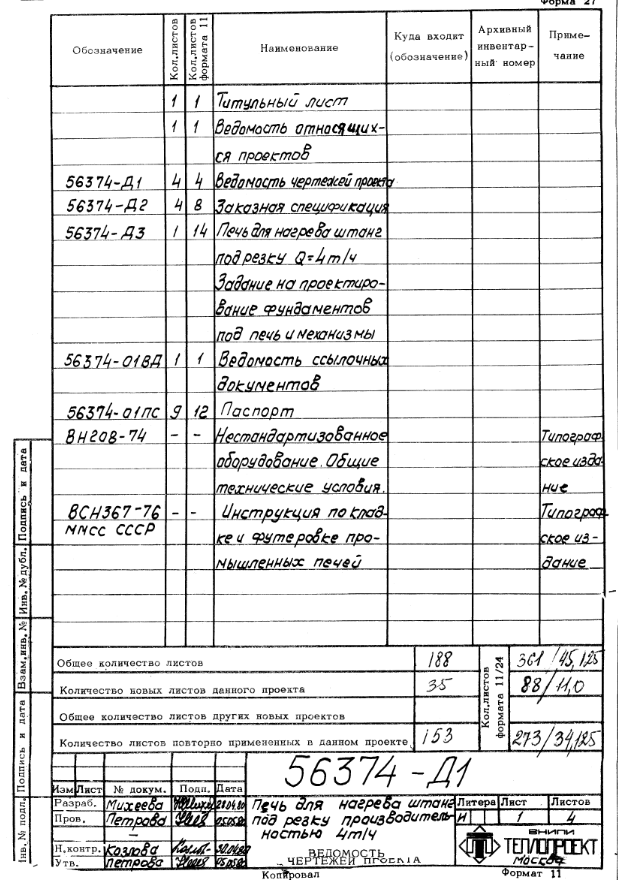 Форма 27
Обозначение
Кол.листов
Кол.листов формата 11
Наименование
Куда входит (обозначение)
Архивный инвентар- ный номер
Приме- чание
1 1 Титульный лист
1 1 Ведомость относящих-
ся проектов
56374-Д1 4 4 Ведомость чертежей проекта
56374-Д2 4 8 Заказная спецификация
56374-Д3 1 14 Печь для нагрева штанг
под резку Q=4т/ч
Задание на проектиро-
вание фундаментов
под печь и механизмы
56374-01ВД 1 1 Ведомость ссылочных
документов
56374-01ПС 9 12 Паспорт
ВН208-74 - - Нестандартизованное Типограф
оборудование. Общие ское изда
технические условия. ние
ВСН367-76 - - Инструкция по клад- Типограф
ММСС СССР ке и футеровке про- ское из-
мышленных печей дание
Общее количество листов 188 361/45,125
Количество новых листов данного проекта 35 88/11,0
Общее количество листов других новых проектов
Количество листов повторно примененных в данном проекте 153 273/34,125
Кол.листов формата 11/24
56374-Д1
Изм Лист № докум. Подп. Дата
Разраб. Михеева 28.04.80
Пров. Петрова 05.05.80
-
Н.контр. Козлова 30.04.80
Утв. Петрова 05.05.80
Печь для нагрева штанг
под резку производитель-
ностью 4т/ч
ВЕДОМОСТЬ
ЧЕРТЕЖЕЙ ПРОЕКТА
Литера Лист Листов
И 1 4
ВНИПИ
ТЕПЛОПРОЕКТ
Москва
Копировал
Формат 11
Инв. № подл.
Подпись и дата
Взам.инв. №
Инв. № дубл.
Подпись и дата